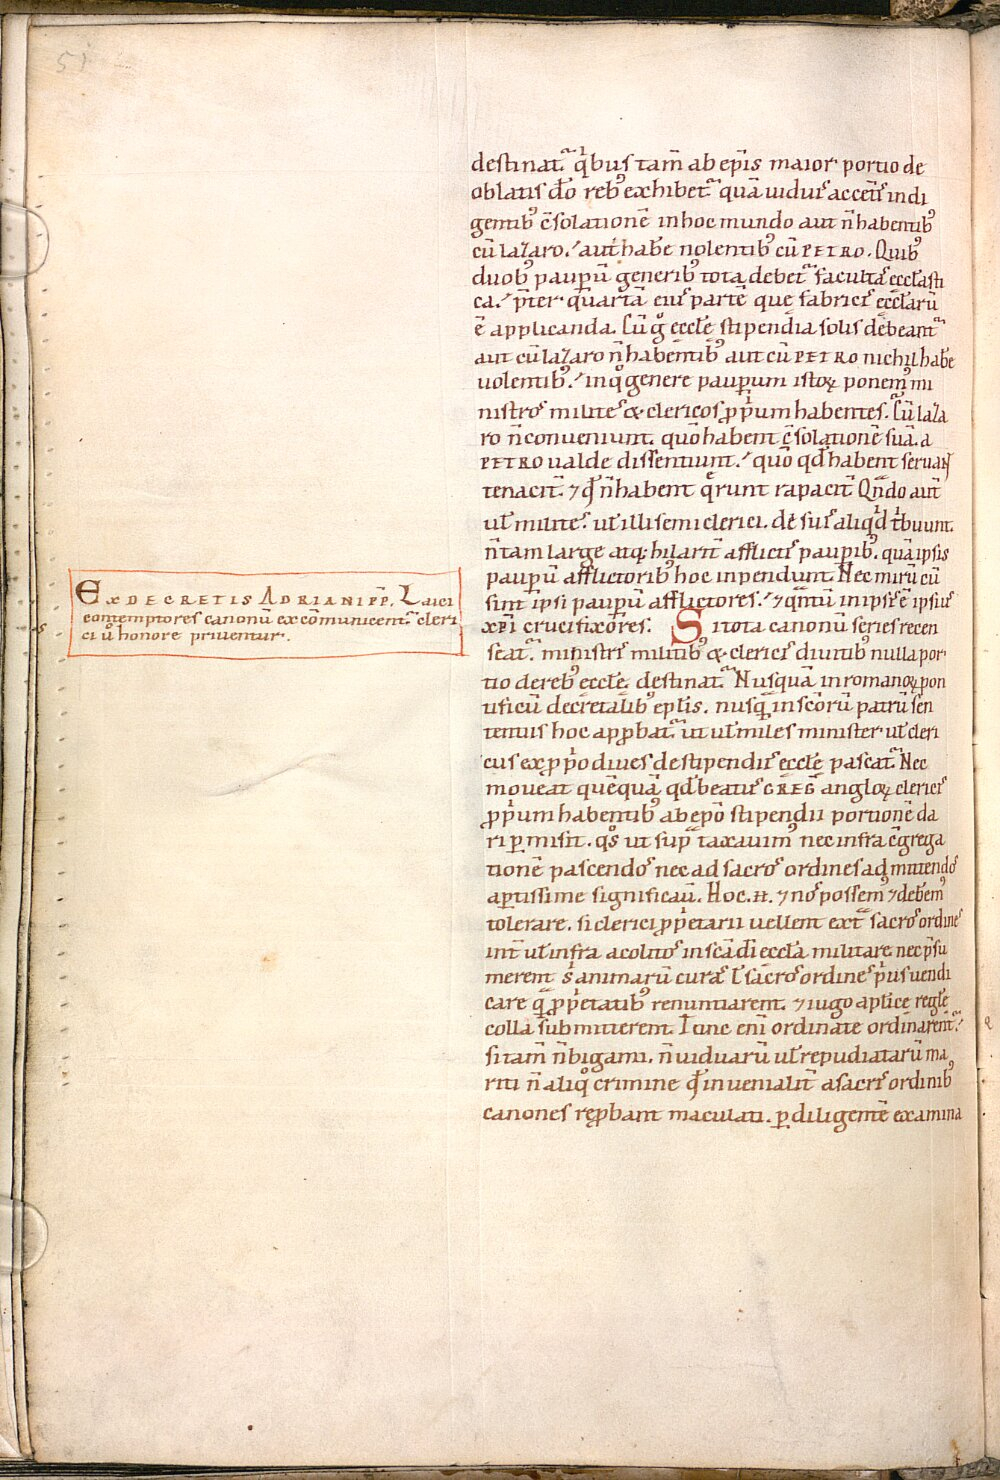 51
destinat᷑. qͥbus tam̄ ab ep̄is maior portio de
oblatis dō reb; exhibet᷑ quā uiduis accēsis indi
gentib; c̄solationē in hoc mundo aut n̄ habentib;
cū lazaro. aut habe nolentib; cū PETRO. Quib;
duob; paupū generib; tota debet᷑ facultas ecclasti
ca. p̄ter quartā eius partē quę fabricis ecclarū
ē applicanda. Cū gͦ ecclę stipendia solis debeant᷑
aut cū lazaro n̄ habentib; aut cū PETRO nichil habe
uolentib; in qͦ genere pauperum istoꝝ ponem; mi
nistros milites & clericos ꝓpͥum habentes. Cū laza
ro n̄ conueniunt. quō habent c̄solationē suā. a
PETRO ualde dissentiunt. quō qd̄ habent seruant
tenacit̄. ⁊ qd̄ n̄ habent qͣrunt rapacit̄. Qn̄do aut̄
ul̄ milites ul̄ illi semiclerici. de suis aliqͥd tͥbuunt.
n̄ tam large atq; hilarit̄ afflictis paupib;. quā ipsis
paupū afflictorib; hoc inpendunt. Nec mirū cū
sint ipsi paupū afflictores. ⁊ qͣntū in ipsis ē ipsius
xp̄i crucifixores. Si tota canonū series recen
seat᷑. ministris militib; & clericis diuitib; nulla por
tio de reb; ecclę destinat᷑. Nusquā in romanoꝝ pon
tificū decretalib; ep̄lis. nusqͣ in scōrū patrū sen
tentiis hoc app̄bat᷑. ut ul̄ miles minister ul̄ cleri
cus ex ꝓpͥo diues de stipendiis ecclę pascat᷑. Nec
moueat quēquā qd̄ beatus GREG̅ angloꝝ clericis
ꝓpͥum habentib; ab ep̄o stipendii portionē da
ri pmisit. qͦs ut supͣ taxauim; nec infra c̄grega
tionē pascendos nec ad sacros ordines admittendos
aptissime significauit. Hoc .n. ⁊ nos possem; ⁊ debem;
tolerare. si clerici ꝓpͥetarii uellent extͣ sacros ordines
int̄ ul̄ infra acolitos in scā dī eccla militare nec p̄su
merent sͥ animarū curas ul̄ sacros ordines pͥus uendi
care qͣ ꝓpͥetatib; renuntiarent. ⁊ iugo aplicę regulę
colla submitterent. Tunc enī ordinate ordinarent᷑.
si tam̄ n̄ bigami. n̄ uiduarū ul̄ repudiatarū ma
riti n̄ aliqͦ crimine qd̄ inuenialit̄ a sacris ordinib;
canones rep̄bant maculati. p diligentē examina
EX DECRETIS ADRIANI PP. Laici
contemptores canonū excōmunicent᷑. cleri
ci ū honore priuentur.